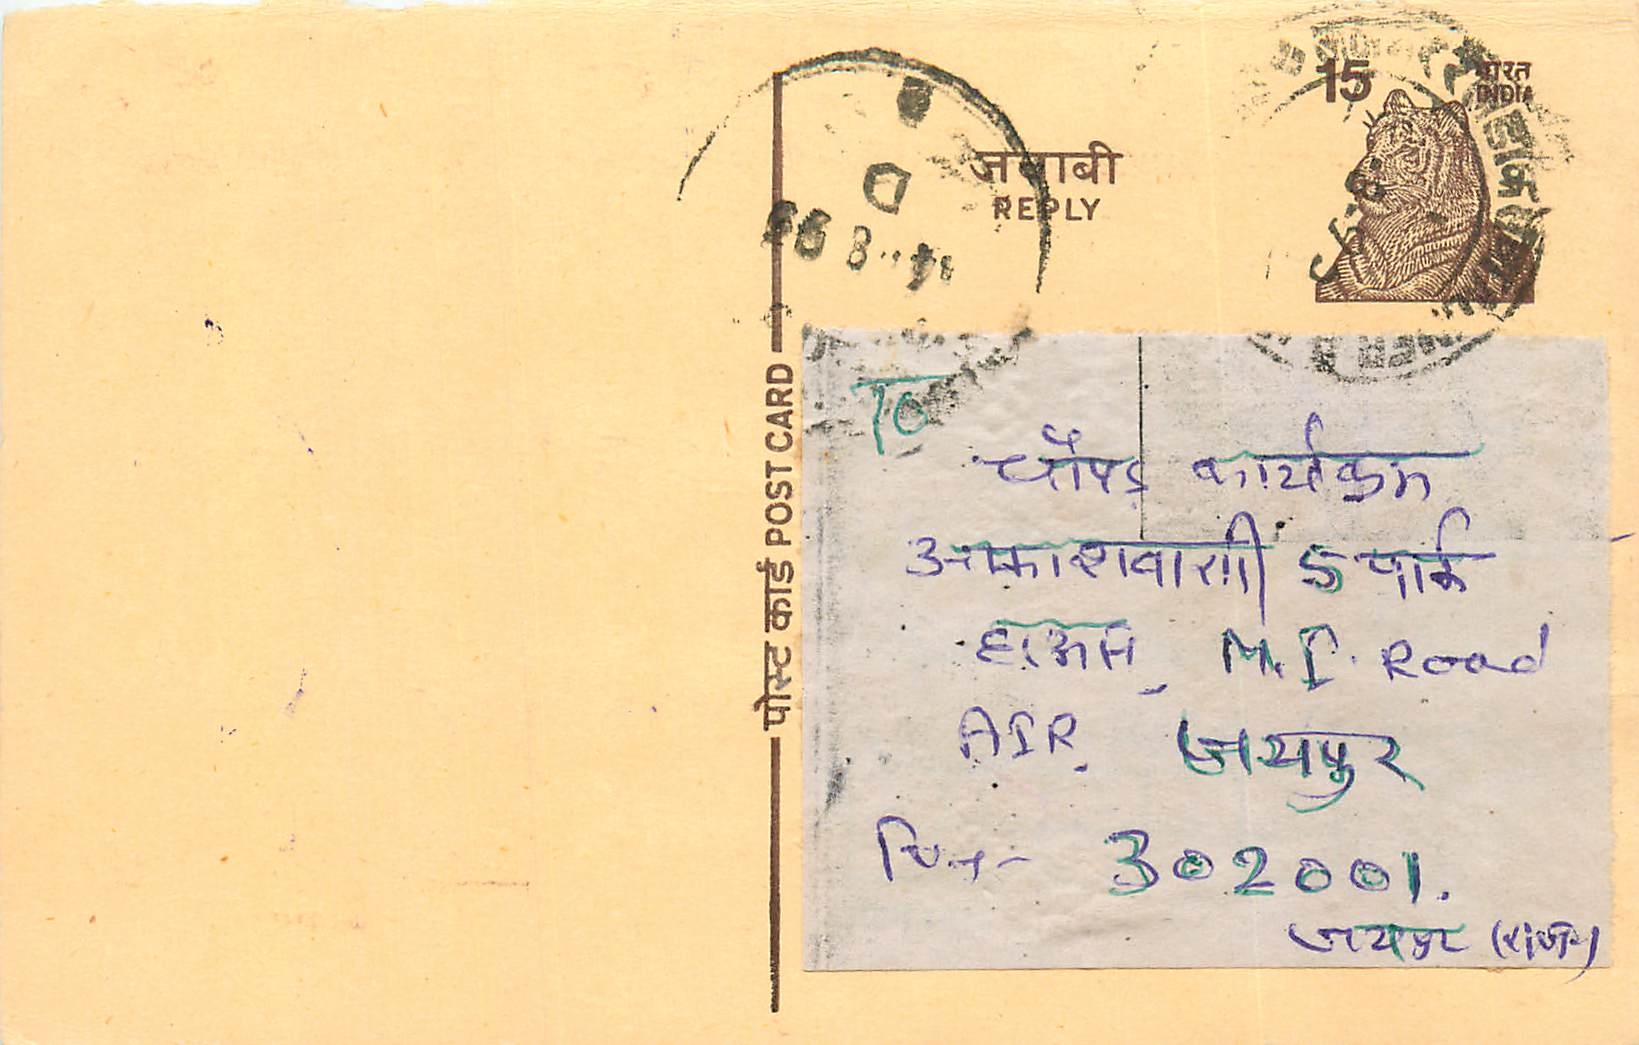 15 भारत
INDIA
जवाबी
REPLY
पोस्ट कार्ड POST CARD
To
चौपड़ कार्यक्रम
आकाशवाणी 5 पार्क
हाऊस, M.I. Road
AIR, जयपुर
पिन- 302001.
जयपुर (राज॰)